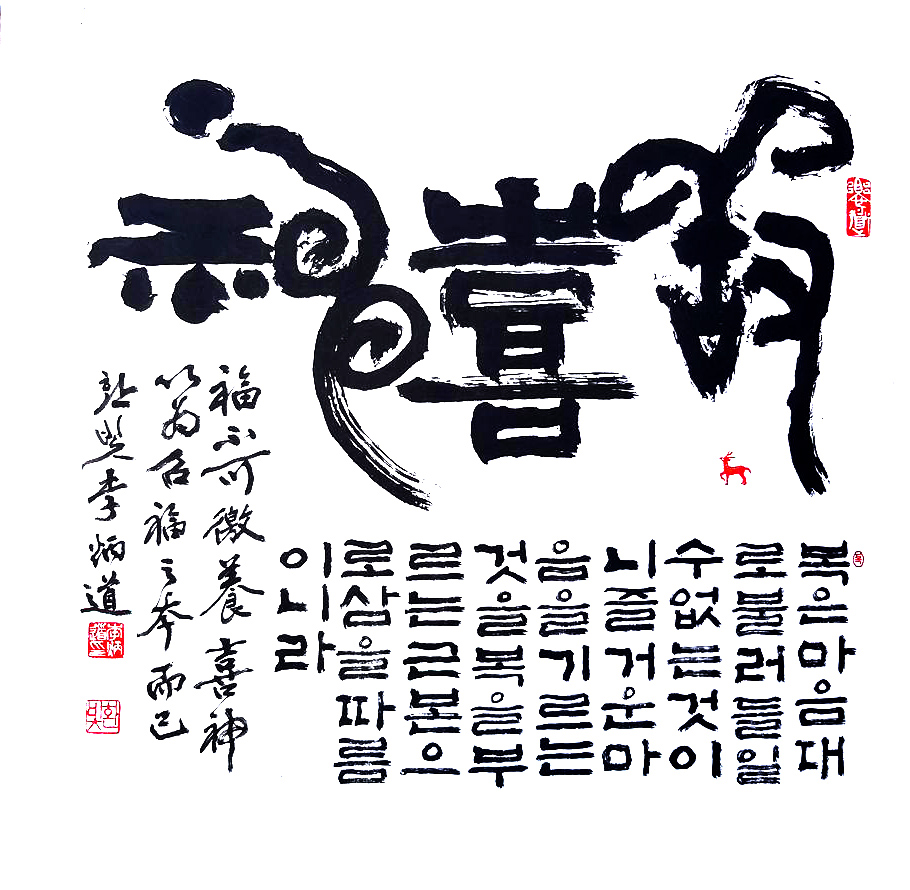 養喜神
복은마음대
로불러들일
수없는것이
니즐거운마
음을기르는
것을복을부
르는근본으
로삼을따름
이니라
福不可徼養喜神
以為召福之本而已
李炳道